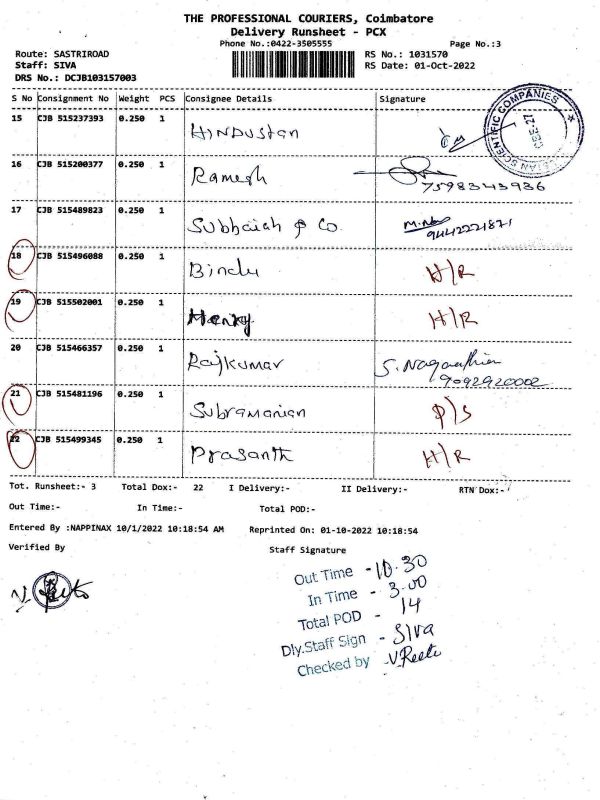 THE PROFESSIONAL COURIERS, Coimbatore
Delivery Runsheet - PCX
Phone No.:0422-3505555 Page No.:3
Route: SASTRIROAD RS No.: 1031570
Staff: SIVA RS Date: 01-Oct-2022
DRS No.: DCJB103157003
S No Consignment No Weight PCS Consignee Details Signature
15 CJB 515237393 0.250 1 HINDUSTAN
SCIENTIFIC COMPANIES
CBE-27
16 CJB 515200377 0.250 1 Ramesh 7598343936
17 CJB 515489823 0.250 1 Subbaiah & Co. 9442221871
18 CJB 515496088 0.250 1 Bindu H/R
19 CJB 515502001 0.250 1 H/R
20 CJB 515466357 0.250 1 Rajkumar
9092920002
21 CJB 515481196 0.250 1 Subramanian P/S
22 CJB 515499345 0.250 1 Prasanth H/R
Tot. Runsheet:- 3 Total Dox:- 22 I Delivery:- II Delivery:- RTN Dox:-
Out Time:- In Time:- Total POD:-
Entered By :NAPPINAX 10/1/2022 10:18:54 AM Reprinted On: 01-10-2022 10:18:54
Verified By Staff Signature
Out Time - 10.30
In Time - 3.00
Total POD - 14
Dly.Staff Sign - Siva
Checked by - V.Reeta